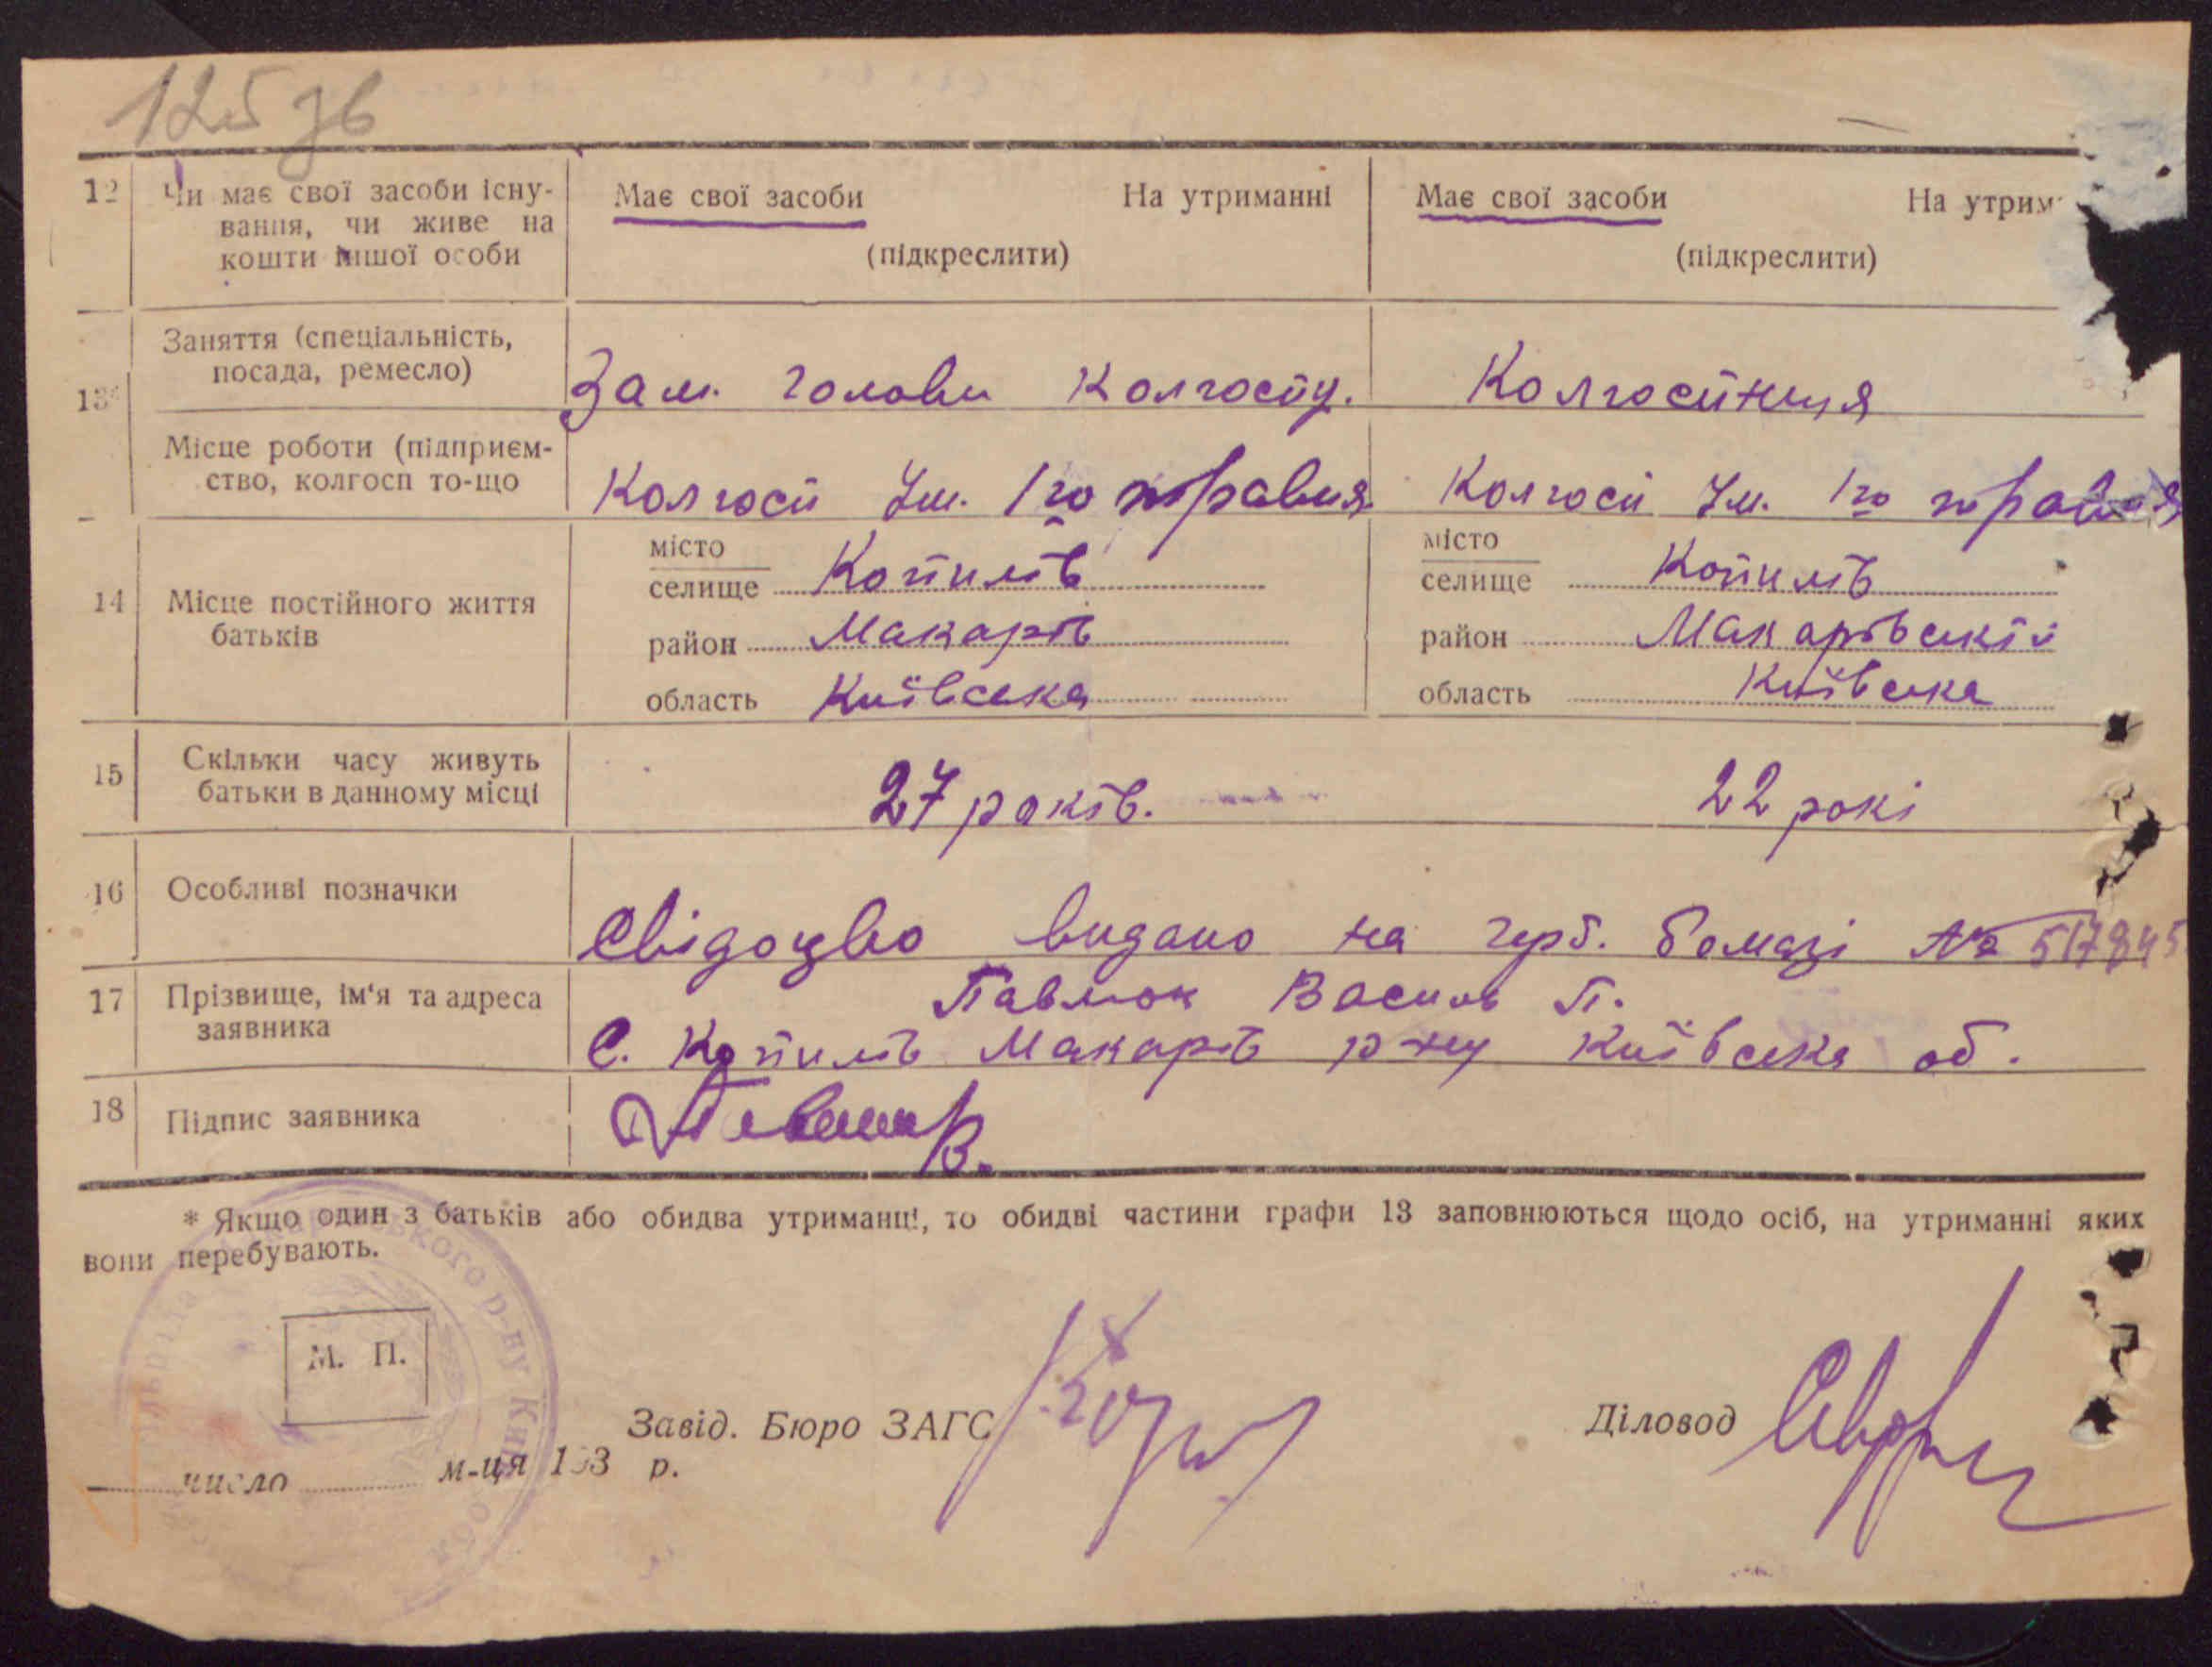 125 зв
12 Чи має свої засоби існу-
вання, чи живе на
кошти іншої особи
Має свої засоби На утриманні
(підкреслити)
Має свої засоби На утрим
(підкреслити)
13*
Заняття (спеціальність,
посада, ремесло)
Зам. голови Колгоспу.
Колгоспниця
Місце роботи (підприєм-
ство, колгосп то-що
Колгосп Ім. 1го травня
Колгосп Ім. 1го травня
14 Місце постійного життя
батьків
місто
селище Копилів
район Макарів
область Київська
місто
селище Копилів
район Макарівскій
область Київська
15 Скільки часу живуть
батьки в данному місці
27 років.
22 рокі
16 Особливі позначки
Свідоцво видано на герб. бомазі № 517845
17 Прізвище, ім'я та адреса
заявника
Павлюк Василь П.
С. Копилів Макарів р-ну Київська об.
18 Підпис заявника
Павлюк В.
* Якщо один з батьків або обидва утриманці, то обидві частини графи 13 заповнюються щодо осіб, на утриманні яких
вони перебувають.
М. П.
р-ну Київ обл
Завід. Бюро ЗАГС
Діловод
число м-ця 193 р.